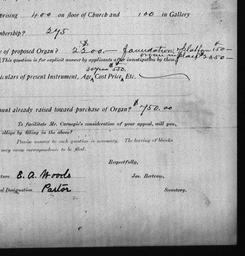 rising 400 on floor of Church and 100 in Gallery
mbership? 275
of proposed Organ? $2200 - foundation, - 150 -
(This question is for explicit answer by applicants after investigation by them)
ticulars of present Instrument, Age, Cost Price, Etc.
unt already raised toward purchase of Organ? $750.00
To facilitate Mr. Carnegie's consideration of your appeal, will you,
oblige by filling in the above?
Precise answer to each question is necessary. The leaving of blanks
may cause correspondence to be filed.
Respectfully,
ature E. A. Woods Jas. Bertram,
ial Designation Pastor Secretary.